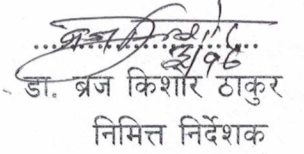 डा. ब्रज किशोर ठाकुर
निमित्त निर्देशक